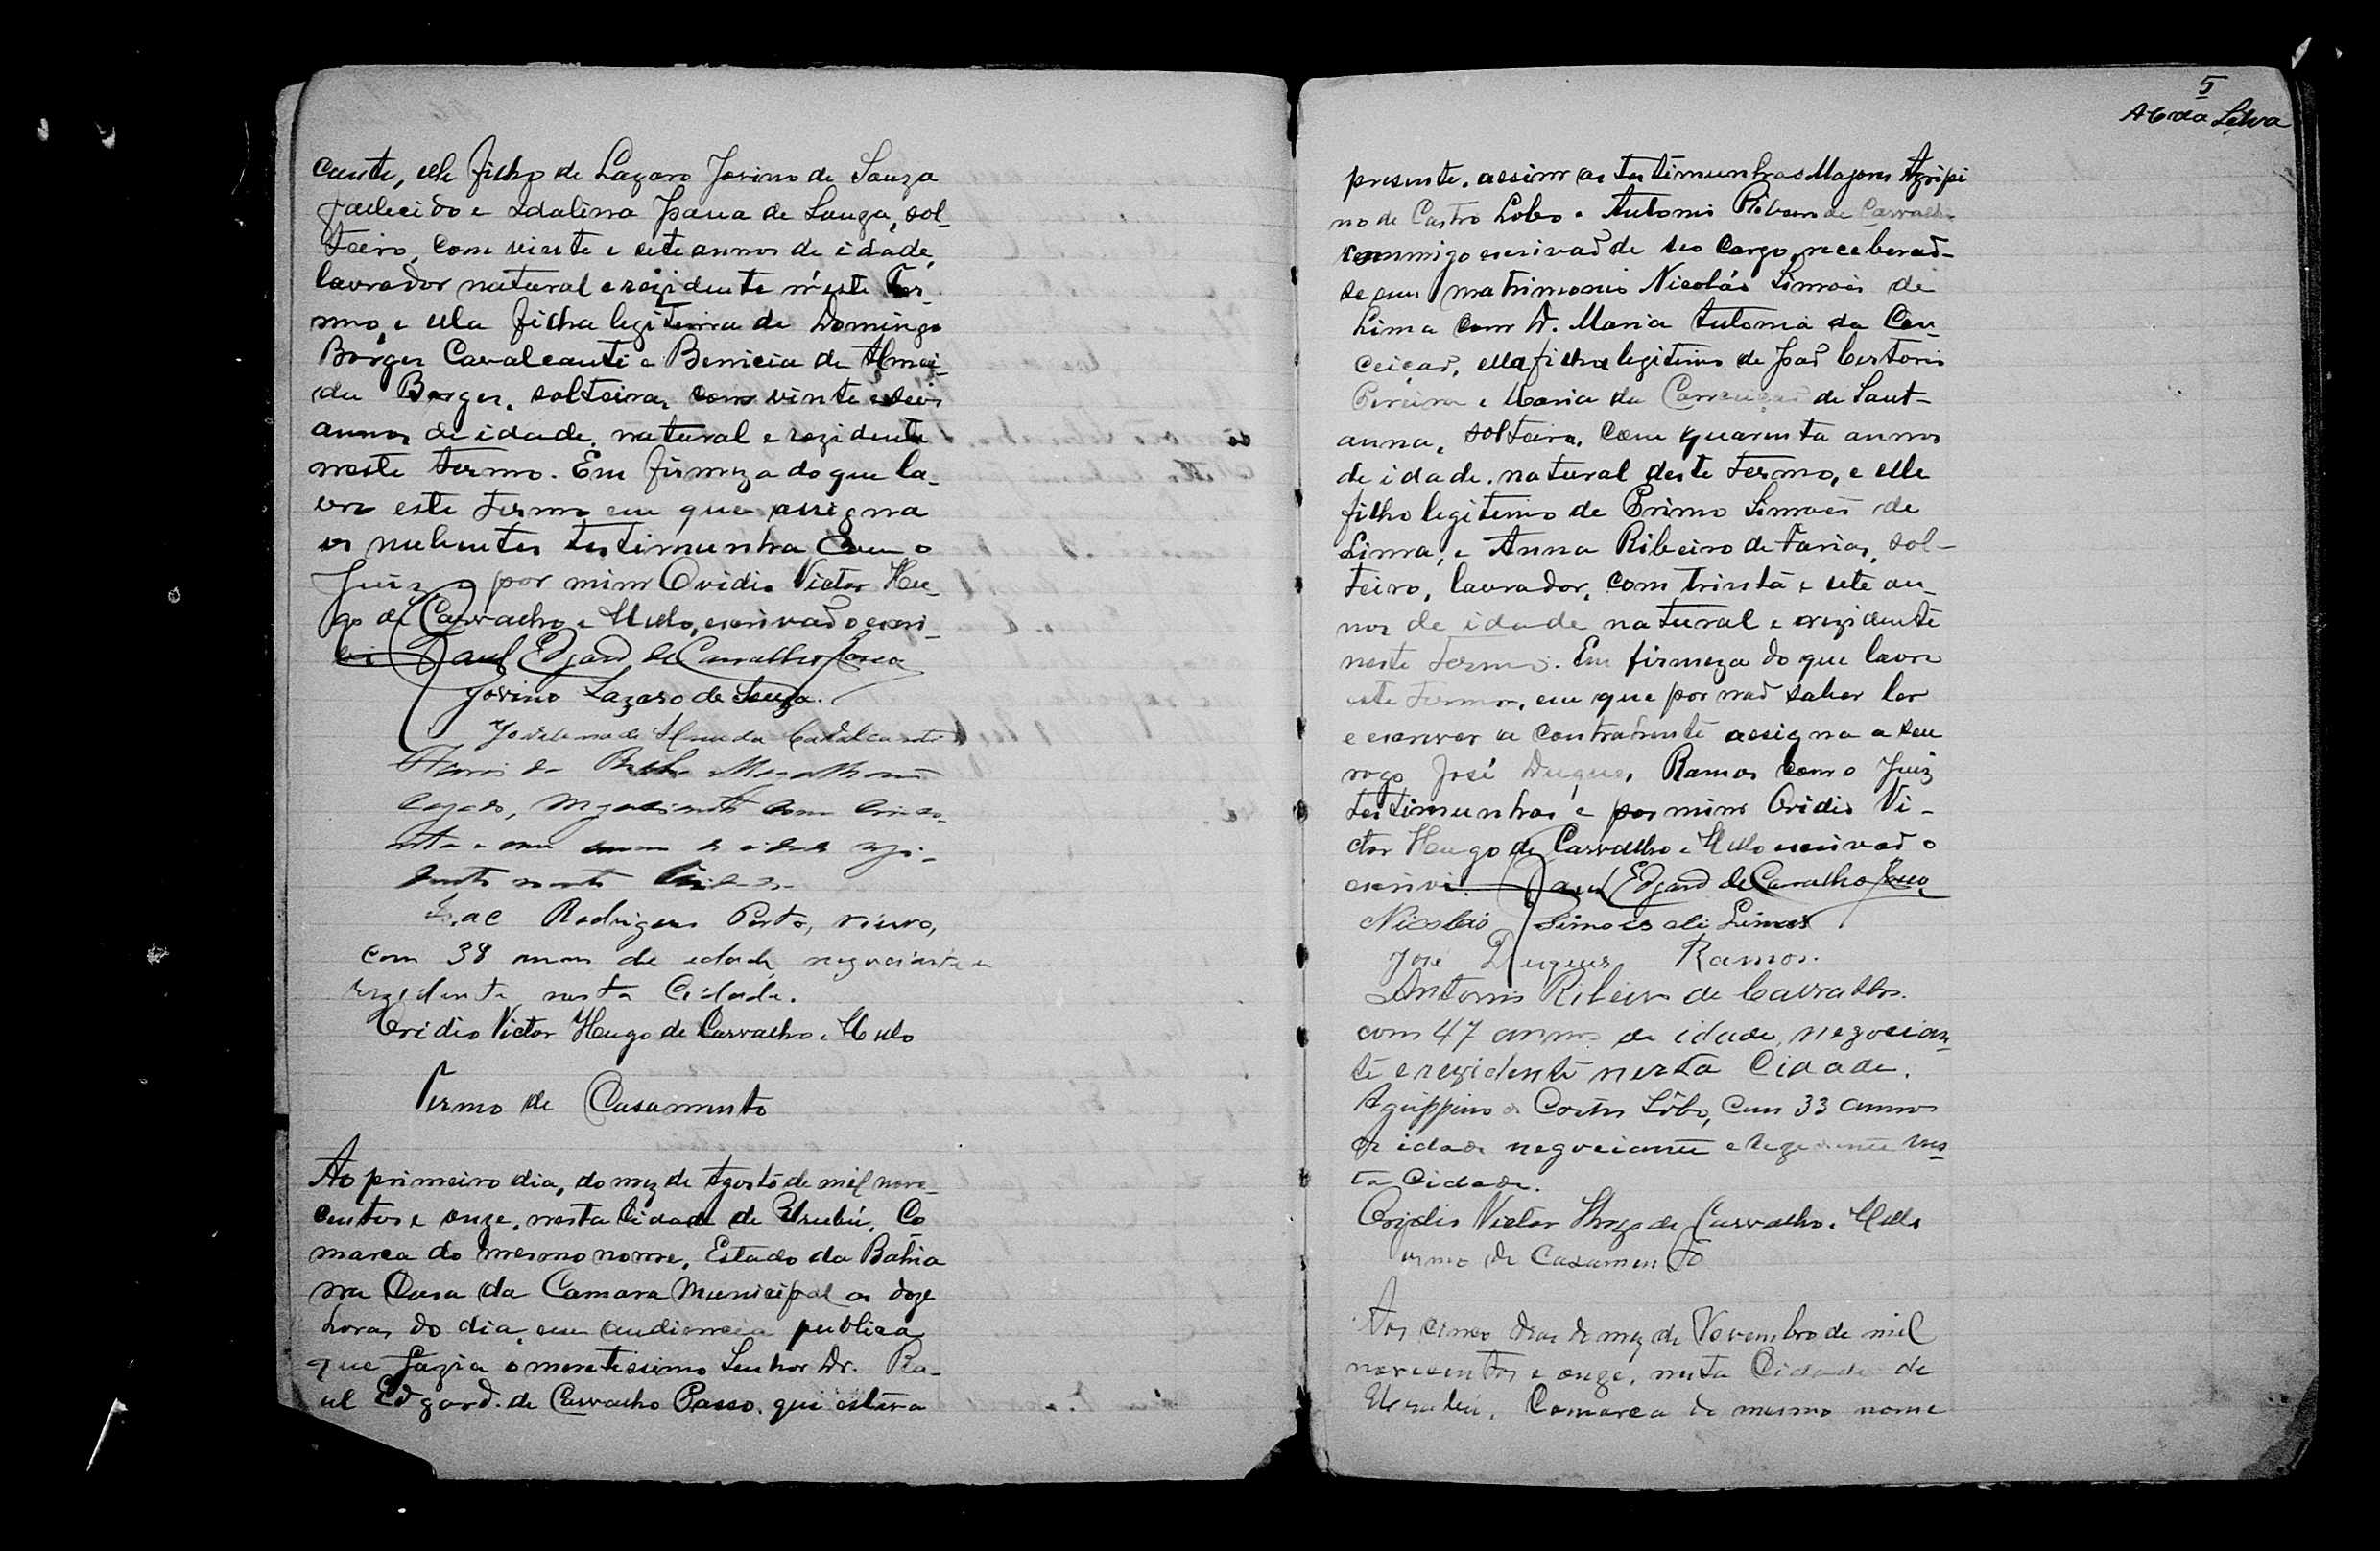 cante, elle filho de Lazaro Jovino de Souza
fallecido e Idalina Joana de Souza, sol-
teiro, com vinte e sete annos de idade,
lavrador natural e rezidente n'este Ter-
mo, e ella filha legitima de Domingo
Borges Cavalcanti e Benicia de Almei-
da Borges, solteira, com vinte e seis
annos de idade, natural e rezidente
neste termo. Em firmeza do que la-
vro este termo em que assigna
os nubentes testimunha com o
Juiz, e por mim Ovidio Victor Hu-
go de Carvalho e Mello, escrivaõ o escri-
vi Raul Edgard de Carvalho
Jovino Lazaro de Souza.
de Almeida Cavalcanti
da Magalhães
com
annos de idade rezi-
dente nesta Cidade
Isac Rodrigues Porto, viuvo,
com 38 annos de edade, negociante e
rezidente nesta Cidade.
Ovidio Victor Hugo de Carvalho e Mello
Termo de Casamento
Ao primeiro dia, do mez de Agosto de mil nove-
centos e onze, nesta Cidade de Urubú, Co
marca do mesmo nome, Estado da Bahia
na Casa da Camara Municipal as doze
horas do dia, em audiencia publica
que fazia o meretissimo Senhor Dr. Ra-
ul Edgard de Carvalho Passo, que estava
5
da Silva
presente, assim as testimunhas Majores Agripi
no de Castro Lobo e Antonio Ribeiro de Carvalho
commigo escrivaõ de seo cargo, receberaõ-
se em matrimonio Nicoláo Simões de
Lima com D. Maria Antonia da Con-
ceiçaõ, ella filha legitima de Joaõ
Pereira e Maria da Conceiçaõ de Sant-
anna, solteira, com quarenta annos
de idade, natural deste termo, e elle
filho legitimo de Primo Simões de
Lima, e Anna Ribeiro de Farias, sol-
teiro, lavrador, com trinta e sete an-
nos de idade natural e rezidente
neste termo. Em firmeza do que lavro
este termo, em que por naõ saber ler
e escrever a contrahente assigna a seu
rogo José Duques Ramos com o Juiz
testimunhas e por mim Ovidio Vi-
ctor Hugo de Carvalho e Mello escrivaõ o
escrivi. Raul Edgard de Carvalho
Nicoláo Simões de Lima
José Duques Ramos.
Antonio Ribeiro de Carvalho.
com 47 annos de idade, negocian-
te e rezidente nesta Cidade.
Agrippino de Castro Lôbo, com 33 annos
de idade negociante e rezidente nes-
ta Cidade.
Ovidio Victor Hugo de Carvalho e Mello
ermo de Casamento
Aos cinco dias do mez de Novembro de mil
novecentos e onze, nesta Cidade de
Urubú, Comarca do mesmo nome